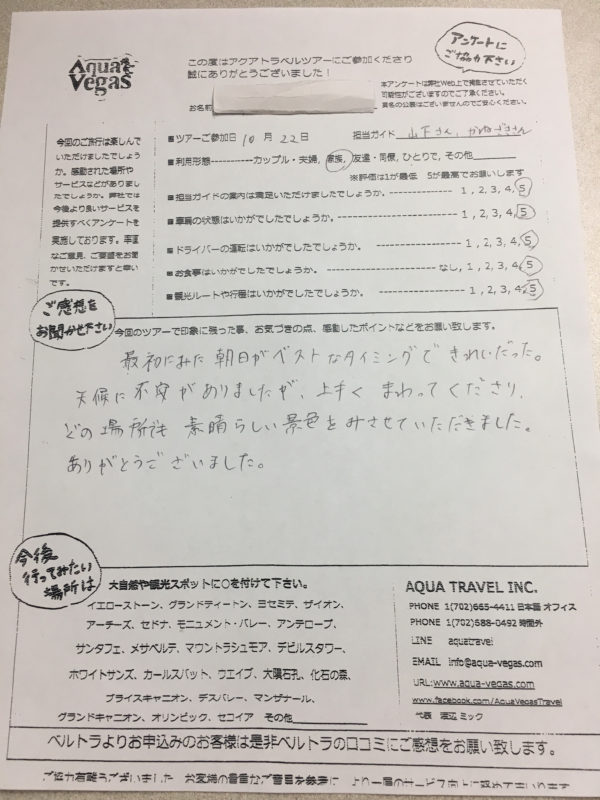 Aqua
Vegas
この度はアクアトラベルツアーにご参加くださり
誠にありがとうございました！
アンケートに
ご協力下さい
本アンケートは弊社Web上で掲載させていただく
可能性がございますのでご了承ください。
貴名の公表はございませんのでご安心ください。
お名前
今回のご旅行は楽しんで
いただけましたでしょう
か。感動された場所や
サービスなどがありまし
たでしょうか。弊社では
今後より良いサービスを
提供すべくアンケートを
実施しております。率直
なご意見、ご要望をお聞
かせいただけますと幸い
です。
■ツアーご参加日 10 月 22 日 担当ガイド 山下さん、かねざきさん
■利用形態-----------カップル・夫婦, 家族, 友達・同僚, ひとりで, その他
※評価は1が最低 5が最高でお願いします
■担当ガイドの案内は満足いただけましたでしょうか。---------------- 1 , 2, 3, 4, 5
■車両の状態はいかがでしたでしょうか。---------------------- 1 , 2, 3, 4, 5
■ドライバーの運転はいかがでしたでしょうか。---------------- 1 , 2, 3, 4, 5
■お食事はいかがでしたでしょうか。---------------- なし, 1 , 2, 3, 4, 5
■観光ルートや行程はいかがでしたでしょうか。---------------- 1 , 2, 3, 4, 5
ご感想を
お聞かせ下さい
今回のツアーで印象に残った事、お気づきの点、感動したポイントなどをお願い致します。
最初にみた 朝日がベストなタイミングで きれいだった。
天候に不安がありましたが、上手く まわってくださり、
どの場所も 素晴らしい景色をみさせていただきました。
ありがとうございました。
今後
行ってみたい
場所は
大自然や観光スポットに○を付けて下さい。
イエローストーン、グランドティートン、ヨセミテ、ザイオン、
アーチーズ、セドナ、モニュメント・バレー、アンテロープ、
サンタフェ、メサベルデ、マウントラシュモア、デビルスタワー、
ホワイトサンズ、カールスバット、ウエイブ、大隕石孔、化石の森、
ブライスキャニオン、デスバレー、マンザナール、
グランドキャニオン、オリンピック、セコイア その他
AQUA TRAVEL INC.
PHONE 1(702)665-4411 日本語 オフィス
PHONE 1(702)688-0492 時間外
LINE aquatravel
EMAIL info@aqua-vegas.com
URL:www.aqua-vegas.com
www.facebook.com/AquaVegasTravel
代表 渡辺 ミック
ベルトラよりお申込みのお客様は是非ベルトラの口コミにご感想をお願い致します。
ご協力有難うございました お客様の貴重なご意見を参考に より一層のサービス向上に努めてまいります